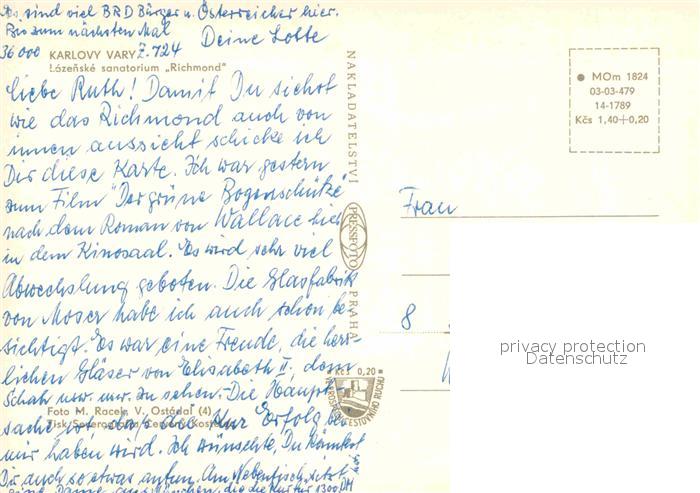 Es sind viel BRD Bürger u. Österreicher hier.
Bis zum nächsten Mal
Deine Lotte
36 000 KARLOVY VARY Z. 724
Lázeňské sanatorium „Richmond"
Liebe Ruth! Damit Du siehst
wie das Richmond auch von
innen aussieht schicke ich
Dir diese Karte. Ich war gestern
zum Film "Der grüne Bogenschütze"
nach dem Roman von Wallace hier
in dem Kinosaal. Es wird sehr viel
Abwechslung geboten. Die Glasfabrik
von Moser habe ich auch schon be-
sichtigt. Es war eine Freude, die herr-
lichen Gläser von Elisabeth II, dem
Schah usw. usw. zu sehen. Die Haupt-
sache ist, daß die Kur Erfolg bei
mir haben wird. Ich wünschte, Du könntest
Dir auch so etwas antun. Am Nebentisch sitzt
eine Dame aus München, die die Kur für 1300 DM
Foto M. Racek, V. Ostádal (4)
Tisk Severografia Červený Kostelec
NAKLADATELSTVÍ
PRESSFOTO
PRAHA
Kčs 0,20
CESTOVNÍHO RUCHU
MOm 1824
03-03-479
14-1789
Kčs 1,40+0,20
Frau
8
privacy protection
Datenschutz